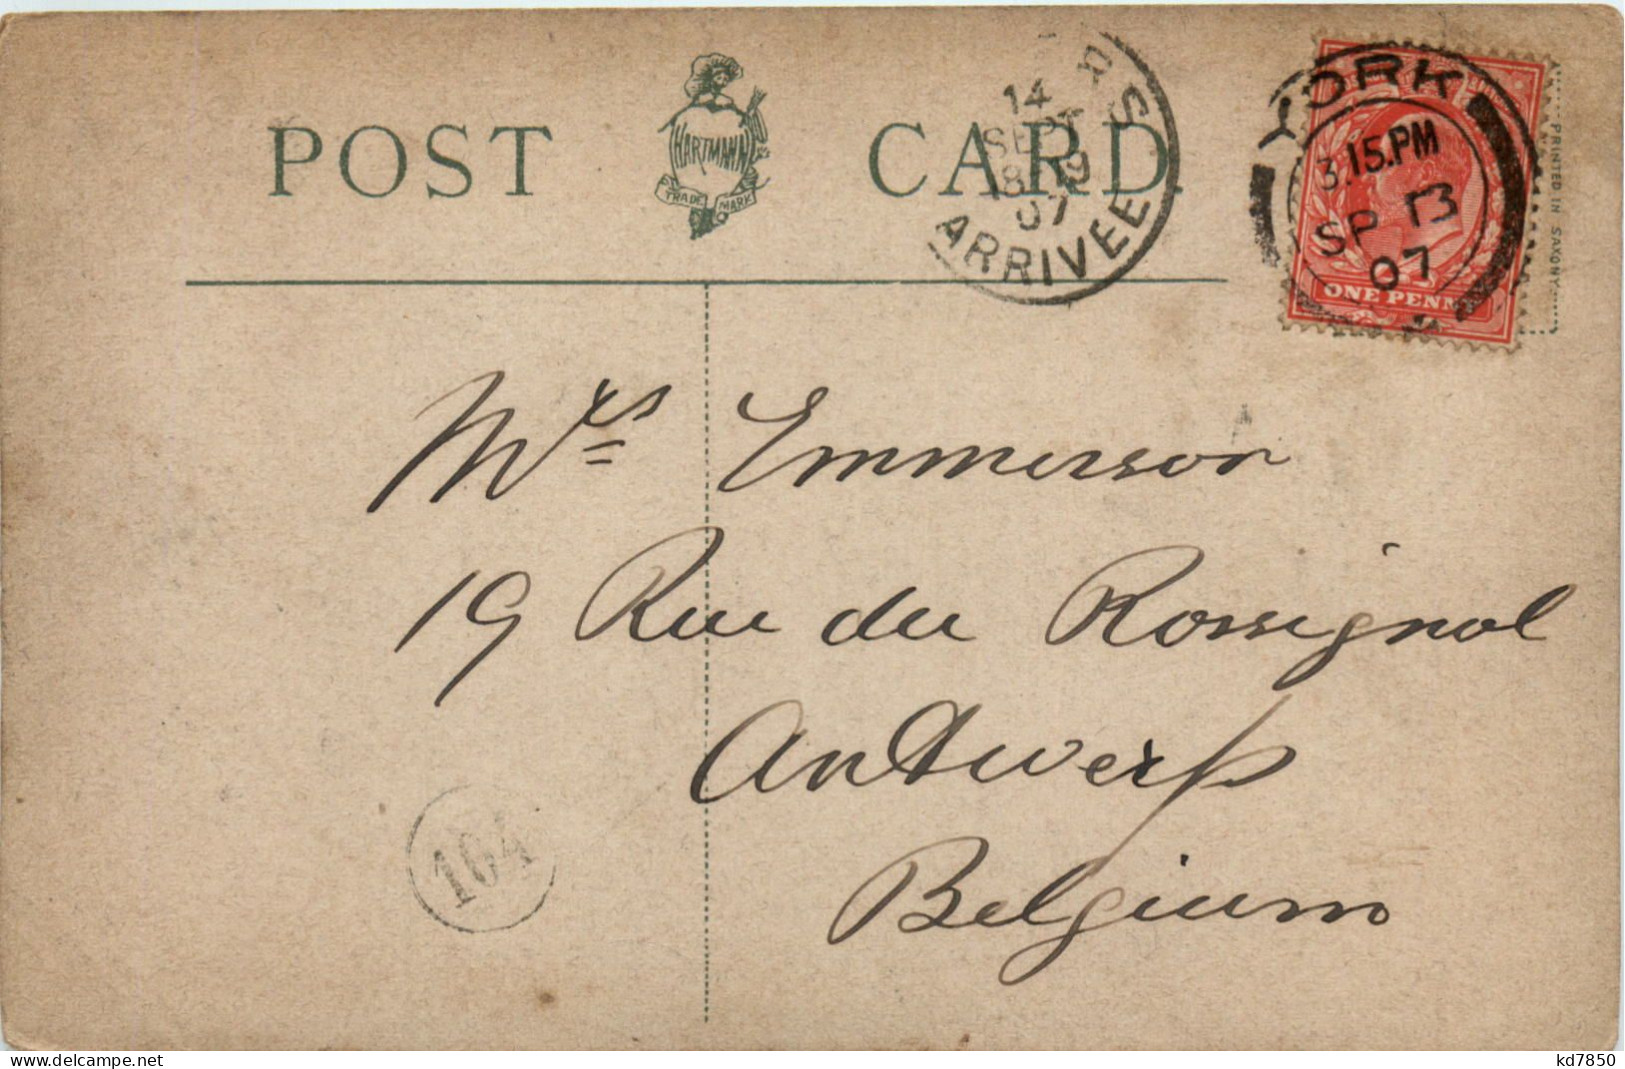 POST CARD
HARTMANN
TRADE MARK
14
SEPT
18-19
07
ARRIVEE
YORK
3.15.PM
SP 13
07
ONE PENNY
PRINTED IN SAXONY
Mrs Emmerson
19 Rue du Rossignol
Antwerp
Belgium
164
kd7850